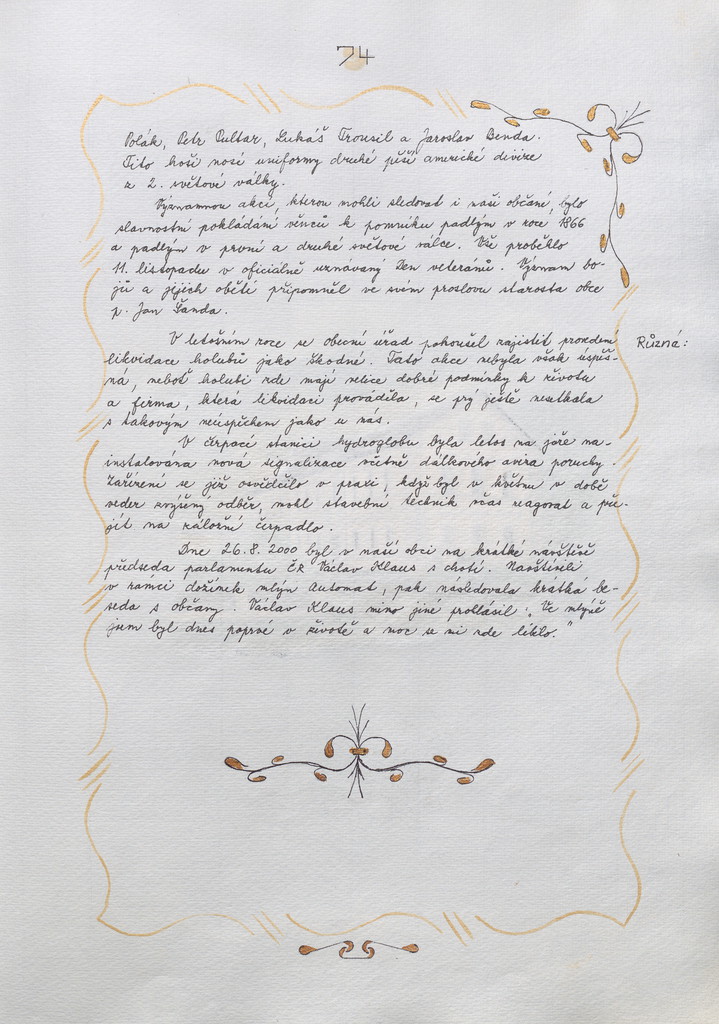 74
Polák, Petr Pultar, Lukáš Trousil a Jaroslav Benda.
Tito hoši nosí uniformy druhé pěší americké divize
z 2. světové války.
Významnou akcí, kterou mohli sledovat i naši občané, bylo
slavnostní pokládání věnců k pomníku padlým v roce 1866
a padlým v první a druhé světové válce. Vše proběhlo
11. listopadu v oficiálně uznávaný Den veteránů. Význam bo-
jů a jejich obětí připomněl ve svém proslovu starosta obce
p. Jan Šanda.
Různá:
V letošním roce se obecní úřad pokoušel zajistit provedení
likvidace holubů jako škodné. Tato akce nebyla však úspěš-
ná, neboť holubi zde mají velice dobré podmínky k životu
a firma, která likvidaci prováděla, se prý ještě nesetkala
s takovým neúspěchem jako u nás.
V čerpací stanici hydroglobu byla letos na jaře na-
instalována nová signalizace včetně dálkového avíra poruchy.
Zařízení se již osvědčilo v praxi, když byl v květnu v době
veder zvýšený odběr, mohl stavební technik včas reagovat a při-
jít na záložní čerpadlo.
Dne 26.8.2000 byl v naší obci na krátké návštěvě
předseda parlamentu ČR Václav Klaus s chotí. Navštívili
v rámci dožínek mlýn Automat, pak následovala krátká be-
seda s občany. Václav Klaus mimo jiné prohlásil: „Ve mlýně
jsem byl dnes poprvé v životě a moc se mi zde líbilo."